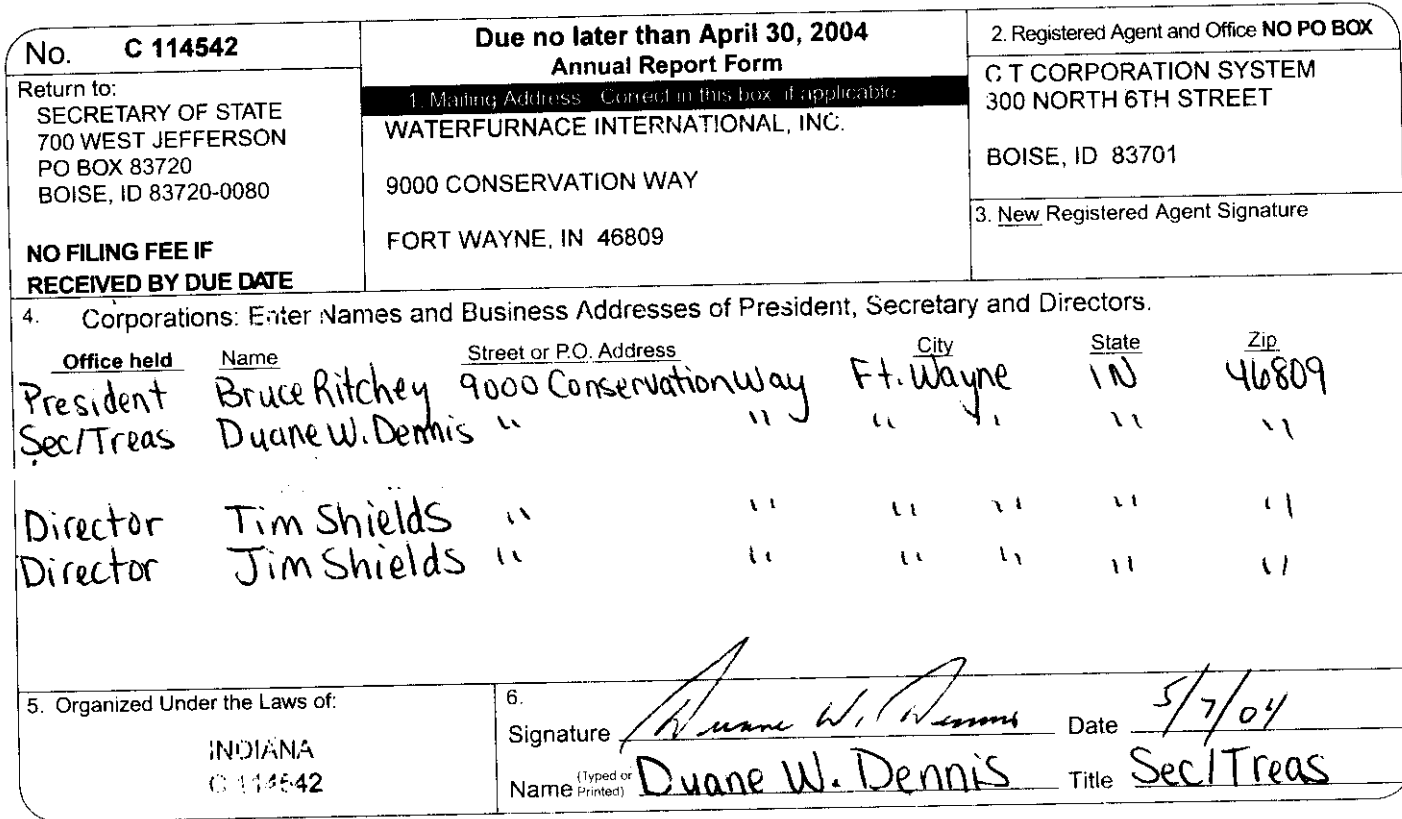 No. C 114542
Return to:
SECRETARY OF STATE
700 WEST JEFFERSON
PO BOX 83720
BOISE, ID 83720-0080
NO FILING FEE IF
RECEIVED BY DUE DATE
Due no later than April 30, 2004
Annual Report Form
1. Mailing Address Correct in this box if applicable
WATERFURNACE INTERNATIONAL, INC.
9000 CONSERVATION WAY
FORT WAYNE, IN 46809
2. Registered Agent and Office NO PO BOX
C T CORPORATION SYSTEM
300 NORTH 6TH STREET
BOISE, ID 83701
3. New Registered Agent Signature
4. Corporations: Enter Names and Business Addresses of President, Secretary and Directors.
Office held Name Street or P.O. Address City State Zip
President Bruce Ritchey 9000 Conservation Way Ft. Wayne IN 46809
Sec/Treas Duane W. Dennis " " " " " "
Director Tim Shields " " " " " "
Director Jim Shields " " " " " "
5. Organized Under the Laws of:
INDIANA
C 114542
6.
Signature Duane W. Dennis Date 5/7/04
Name (Typed or Printed) Duane W. Dennis Title Sec/Treas